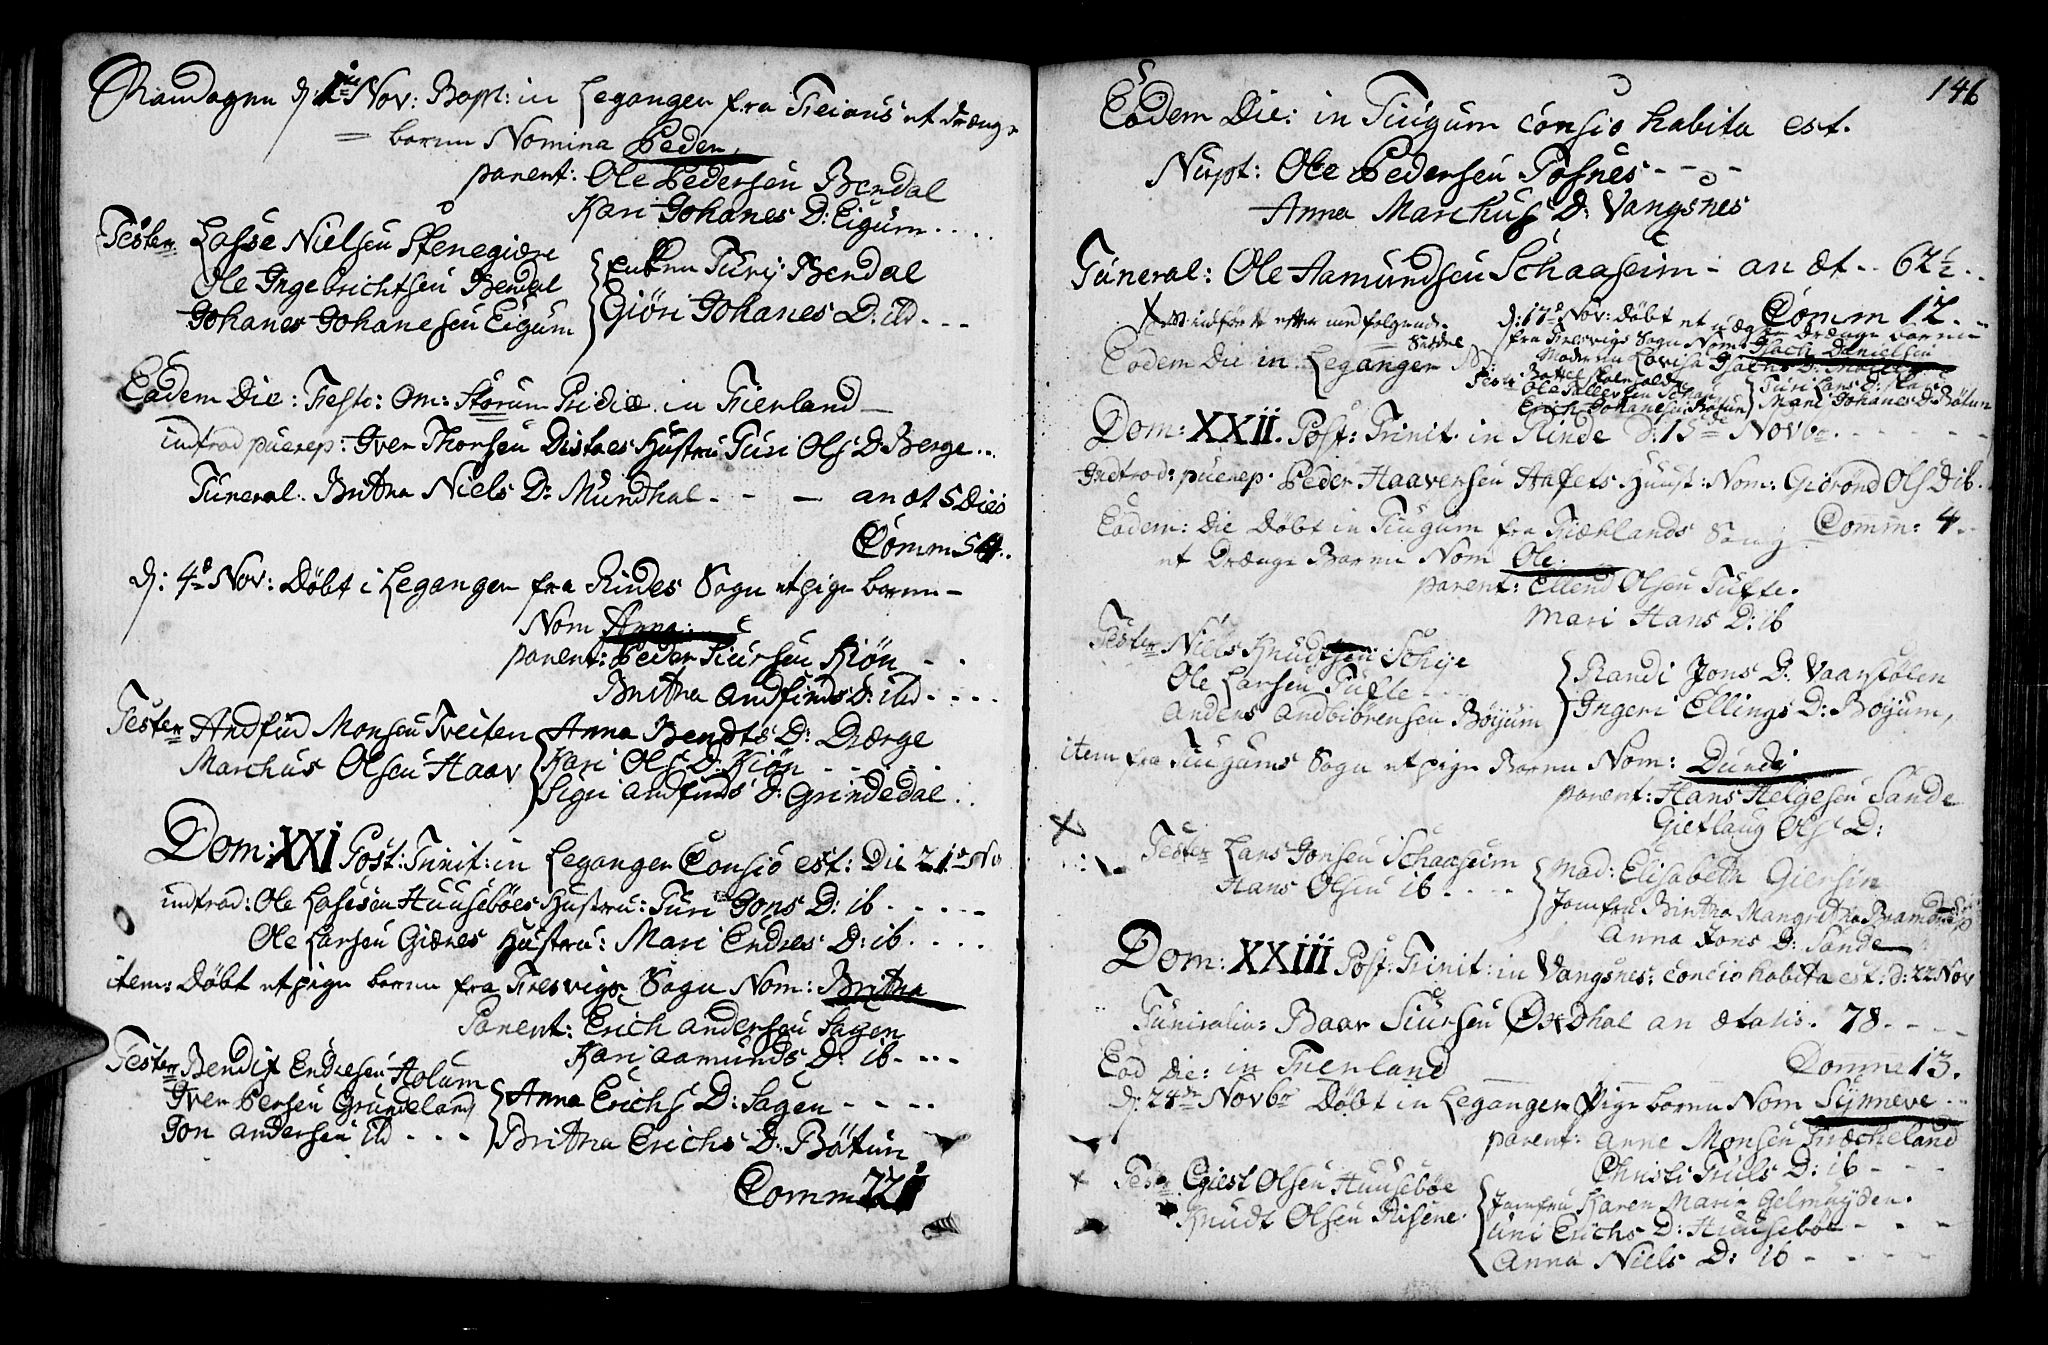 Mandagen d: 1te Nov: Bapt: in Legangen fra Freiøus et drænge
= barn Nomina Peder,
parent: Ole Pedersen Bendal
Kari Johanes D: Eigum....
Tester Lasse Nielsen Stenegiære
Ole Ingebrichtsen Bendal
Johanes Johanesen Eigum
Enken Turi Bendal
Giøri Johanes D: ibd - - -
Eadem Die: Festo: Om: Storum Pridiæ in Fierland -
indtrod puerep: Iver Thorsen Distaes Hustru Turi Ols D: Berge...
Funeral. Britha Niels D: Mundhal - - - an æt 5 Dies
Comm 54..
d: 4de Nov: Døbt i Legangen fra Rindes Sogn et pige barn -
Nom Anna:
parent: Peder Siursen Kiøn - -
Britha Andfinds D: ibd - - - -
Tester Andfind Monsen Tveiten
Marchus Olsen Haav
Anna Bendts D: Diærge
Kari Ols D: Kiøn - - - -
Sigri Andfinds D: Grindedal..
Dom: XXI Post: Trinit: in Leganger Consio est: Die No
indtrod: Ole Lassesen Huusebøes Hustru: Turi Jons D: ib - - - - -
Ole Larsen Giæres Hustru: Mari Endres D: ib. - - - -
item: Døbt et pige barn fra Fresvigs Sogn Nom: Britha
Parent: Erich Andersen Sagen
Kari Aamunds D: ib - - - -
Tester Bendix Endresen Holum
Iver Persen Grundeland
Jon Andersen ibd - - -
Anna Erichs D: Sagen - - - -
Britha Erichs D: Bøtun
Comm 22
146
Eodem Die: in Tiugum consio habita est.
Nupt: Ole Pedersen Posnes - - - -
Anna Marchus D: Vangsnes
Funeral: Ole Aamundsen Schaaseim - an æt - 62½..
Comm 12.
X indført efter nedfølgende.
Eodem Die in Leganger
d: 17de Nov: døbt et uægte Drænge barn
fra Fresvigs Sogn Nom: Isach Danielsen
Moderen Lovisa
Ole Pallesen
Erich Johanesen Bøtun
Turi Lars D:
Mari Johanes D: Bøtun
Dom: XXII. Post: Trinit. in Rinde d: 15de Novbr. - - - - - -
Indtrod: puerep: Peder Haaversen Hust: Nom: Giorond Ols D ib.
Comm: 4..
Eadem: Die Døbt in Tiugum fra Fiærlands Sogn
et Drænge Barn Nom Ole.
parent: Ellend Olsen Tufte.
Mari Hans D: ib
Tester Niels Knudsen
Ole Larsen Tufte - - -
Anders Andbiørensen Bøyum
Randi Jons D: Vaarstølen
Ingeri Ellings D: Bøyum,
item fra Tiugums Sogn et pige Barn Nom: Dundi
parent: Hans Helgesen Sande
Gietlaug Ols D:
Tester Lars Jonsen Schaaseim
Hans Olsen ib. - - - -
Mad: Elisabeth Giersin
Jomfru Britha Mangretha
Anna Jons D: Sande
Dom: XXIII Post: Trinit: in Vangsnes: concio habita est: d: 22 Nov
Funiralia: Baar Siursen an ætatis. 78. - - - -
Eod Die: in Fierland
Comme 13.
d: 24de Novbr Døbt in Leganger Pige barn Nom Synneve...
parent: Arne Monsen Fræcheland
Christi Friels D: ib - - -
Test: Giest Olsen Huusebøe
Knudt Olsen Risene.
Jomfru Karen Marie Gelmuyden.
Uni Erichs D: Huusebøe - - -
Anna Niels D: ib - - - -